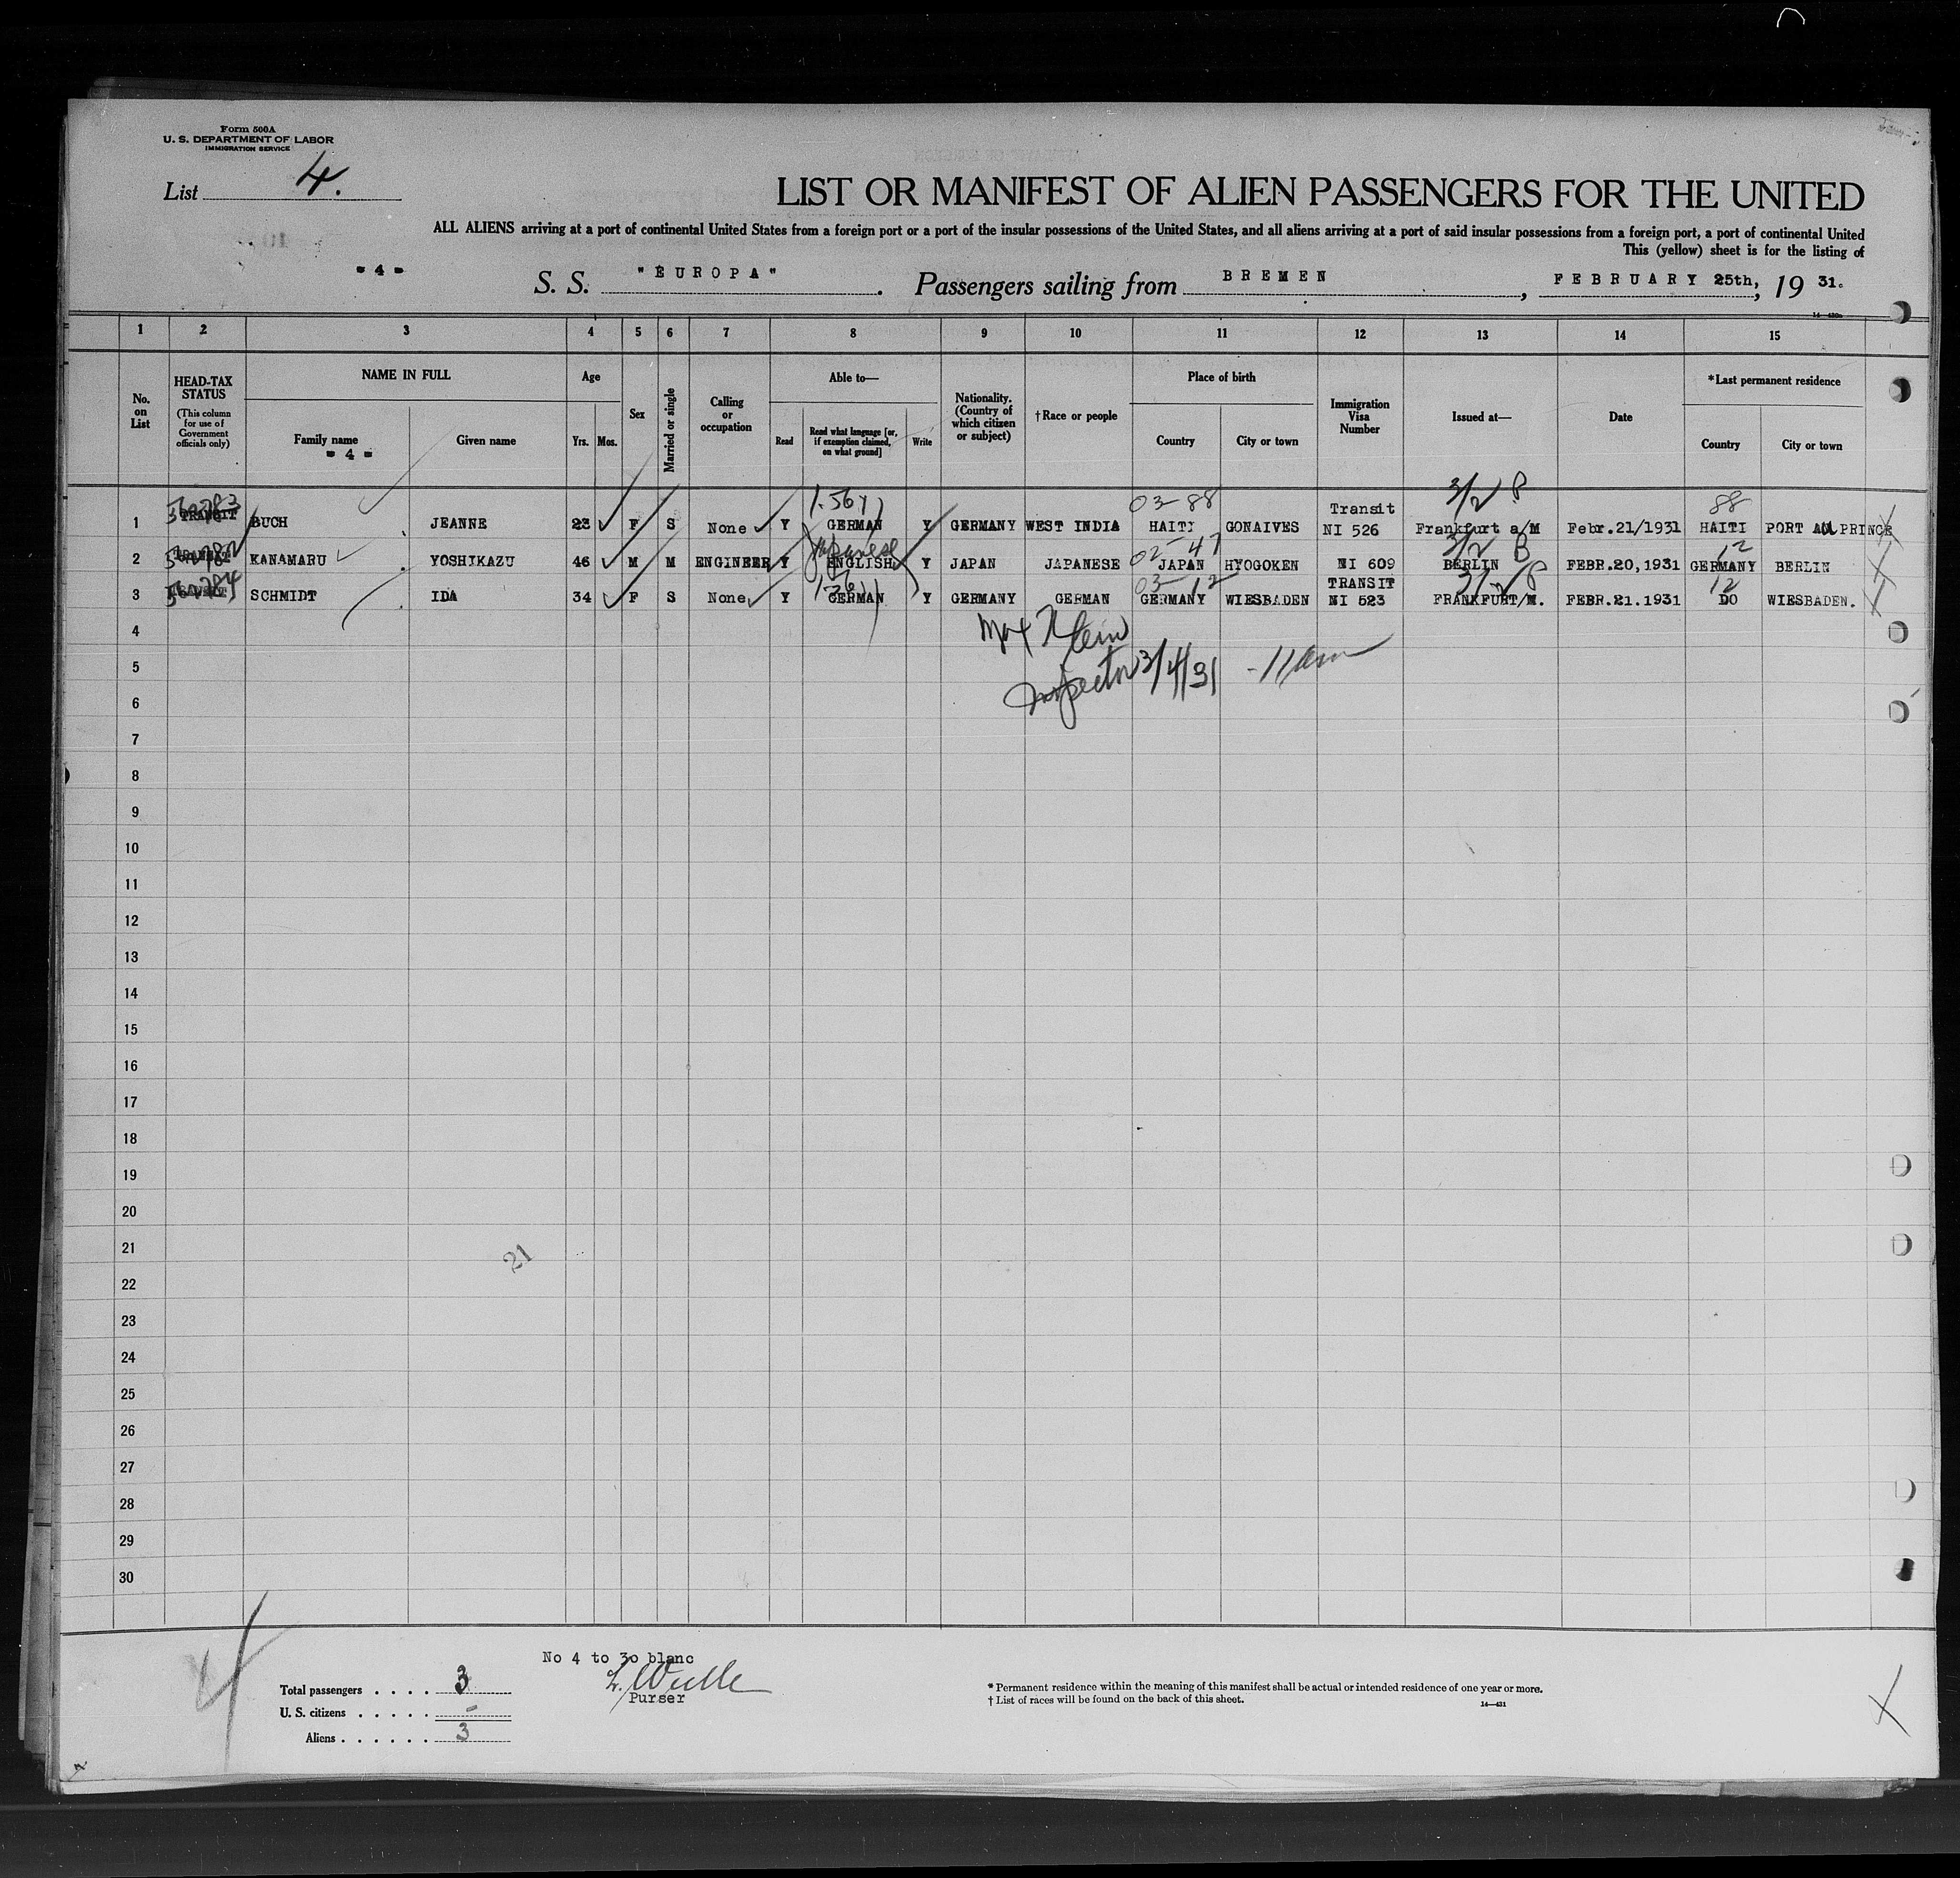 Form 500A
U. S. DEPARTMENT OF LABOR
IMMIGRATION SERVICE
List 4.
LIST OR MANIFEST OF ALIEN PASSENGERS FOR THE UNITED
ALL ALIENS arriving at a port of continental United States from a foreign port or a port of the insular possessions of the United States, and all aliens arriving at a port of said insular possessions from a foreign port, a port of continental United
This (yellow) sheet is for the listing of
= 4 =
S. S. "EUROPA". Passengers sailing from BREMEN, FEBRUARY 25th, 19 31.
1 2 3 4 5 6 7 8 9 10 11 12 13 14 15
No. on List
HEAD-TAX STATUS
(This column for use of Government officials only)
NAME IN FULL
Family name
= 4 =
Given name
Age
Yrs. Mos.
Sex
Married or single
Calling or occupation
Able to—
Read
Read what language [or, if exemption claimed, on what ground]
Write
Nationality. (Country of which citizen or subject)
†Race or people
Place of birth
Country
City or town
Immigration Visa Number
Issued at—
Date
*Last permanent residence
Country
City or town
03-88 3/2 88
1 TRANSIT BUCH JEANNE 23 F S None Y GERMAN Y GERMANY WEST INDIA HAITI GONAIVES Transit NI 526 Frankfurt a/M Febr.21/1931 HAITI PORT AU PRINCE
Japanese 02-47 3/2 12
2 TRANSIT KANAMARU YOSHIKAZU 46 M M ENGINEER Y ENGLISH Y JAPAN JAPANESE JAPAN HYOGOKEN NI 609 BERLIN FEBR.20,1931 GERMANY BERLIN
03-12 3/2 12
3 TRANSIT SCHMIDT IDA 34 F S None Y GERMAN Y GERMANY GERMAN GERMANY WIESBADEN TRANSIT NI 523 FRANKFURT/M. FEBR.21.1931 DO WIESBADEN.
4
Max Klein
5
Inspector 3/4/31 - 11am
6
7
8
9
10
11
12
13
14
15
16
17
18
19
20
21
21
22
23
24
25
26
27
28
29
30
No 4 to 30 blanc
Purser
Total passengers . . . . 3
U. S. citizens . . . . . -
Aliens . . . . . . 3
* Permanent residence within the meaning of this manifest shall be actual or intended residence of one year or more.
† List of races will be found on the back of this sheet.
14—431